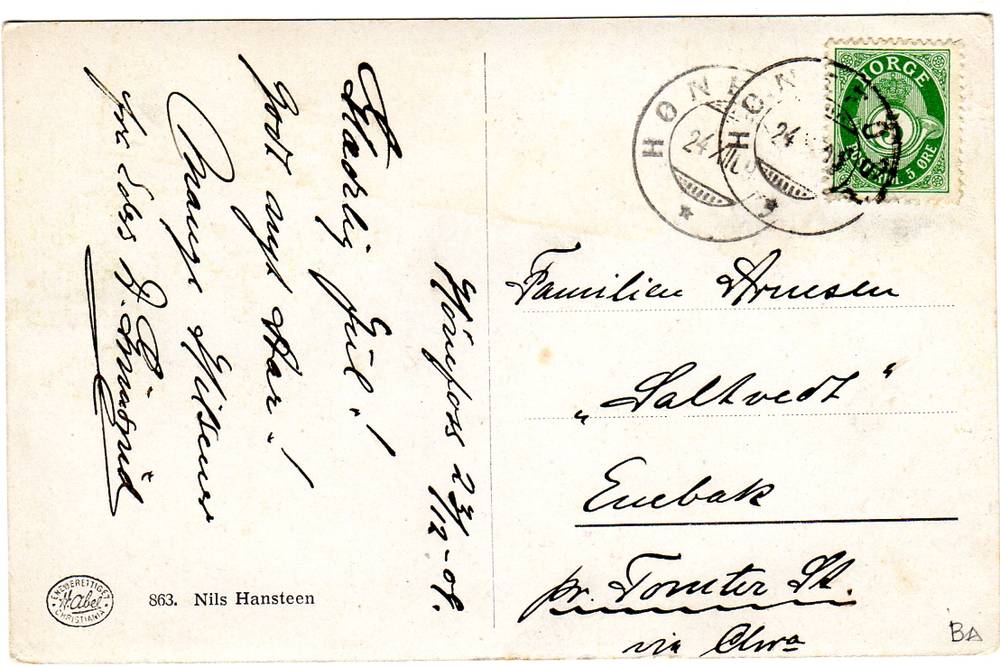 Hönefoss 23/12-08.
Glædelig Jul!
Godt nyt Aar!
Mange Hilsener
fra Eders
HØNE
24 XII 08
HØNE
24
NORGE
POSTFRIM. 5 ØRE
Familien Arnesen
„Saltvedt"
Enebak
pr. Tomter St.
via Chra
863. Nils Hansteen
ENEBERETTIGET
Abel
CHRISTIANIA
BA